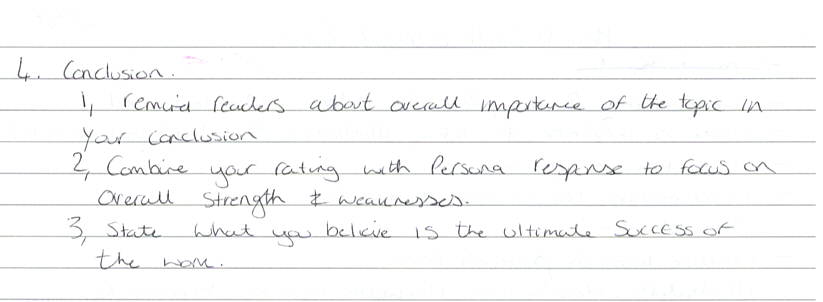 4. Conclusion.
1, remind readers about overall importance of the topic in
your conclusion
2, Combine your rating with Persona response to focus on
Overall strength & weaknesses.
3, State what you believe is the ultimate success of
the work.